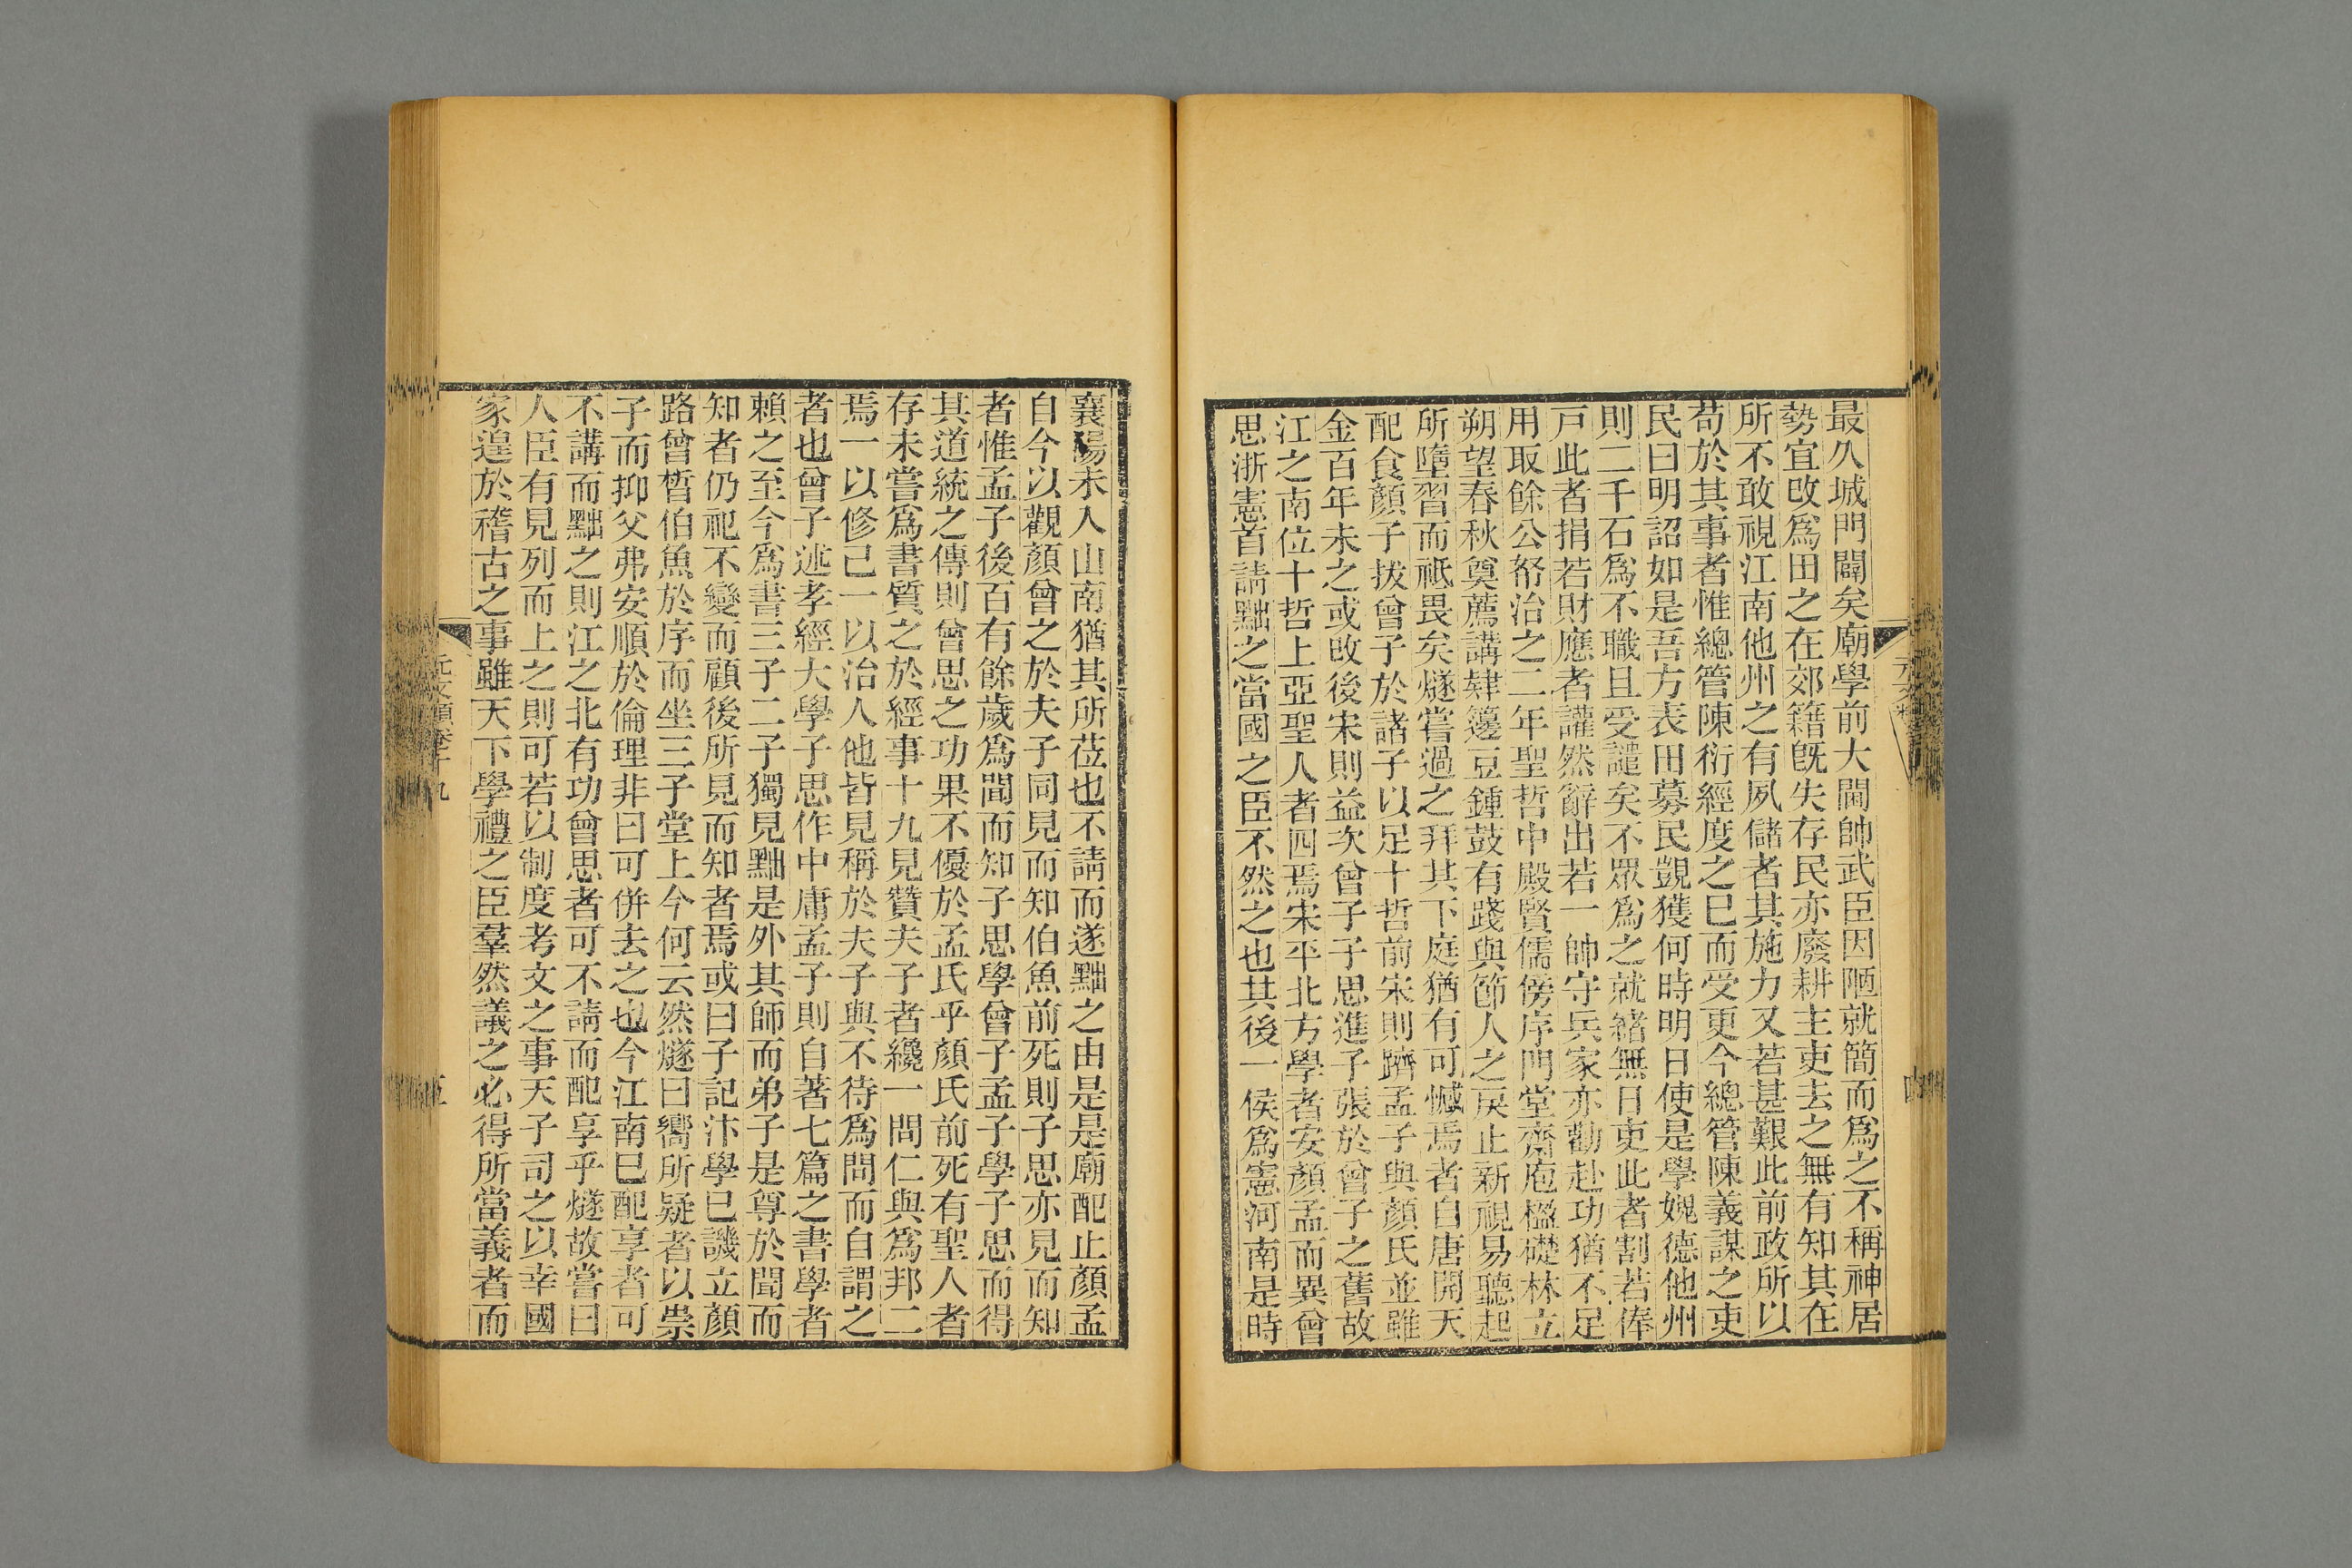 最久城門闢矣廟學前大閫帥武臣因陋就簡而爲之不稱神居
勢宜改爲田之在郊籍既失存民亦廢耕主吏去之無有知其在
所不敢視江南他州之有夙儲者其施力又若甚艱此前政所以
苟於其事者惟總管陳衍經度之已而受更今總管陳義謀之吏
民曰明詔如是吾方表田募民覬獲何時明日使是學媿德他州
則二千石爲不職且受譴矣不眾爲之就緒無日吏此者割若俸
戸此者捐若財應者讙然辭出若一帥守兵家亦勸赴功猶不足
用取餘公帑治之二年聖哲中殿賢儒傍序門堂齋庖楹礎林立
朔望春秋奠薦講肄籩豆鍾鼓有踐與節人之戾止新視易聽起
所墮習而祗畏矣燧嘗過之拜其下庭猶有可憾焉者自唐開天
配食顏子拔曾子於諸子以足十哲前宋則躋孟子與顏氏並雖
金百年未之或改後宋則益次曾子子思進子張於曾子之舊故
江之南位十哲上亞聖人者四焉宋平北方學者安顏孟而異曾
思浙憲首請黜之當國之臣不然之也其後一侯爲憲河南是時
襄陽未入山南猶其所莅也不請而遂黜之由是是廟配止顏孟
自今以觀顏曾之於夫子同見而知伯魚前死則子思亦見而知
者惟孟子後百有餘歲爲聞而知子思學曾子孟子學子思而得
其道統之傳則曾思之功果不優於孟氏乎顏氏前死有聖人者
存未嘗爲書質之於經事十九見贊夫子者纔一問仁與爲邦二
焉一以修己一以治人他皆見稱於夫子與不待爲問而自謂之
者也曾子述孝經大學子思作中庸孟子則自著七篇之書學者
賴之至今爲書三子二子獨見黜是外其師而弟子是尊於聞而
知者仍祀不變而顧後所見而知者焉或曰子記汴學已譏立顏
路曾晳伯魚於序而坐三子堂上今何云然燧曰嚮所疑者以祟
子而抑父弗安順於倫理非曰可併去之也今江南已配享者可
不講而黜之則江之北有功曾思者可不請而配享乎燧故嘗曰
人臣有見列而上之則可若以制度考文之事天子司之以幸國
家遑於稽古之事雖天下學禮之臣羣然議之必得所當義者而
元文類卷十九